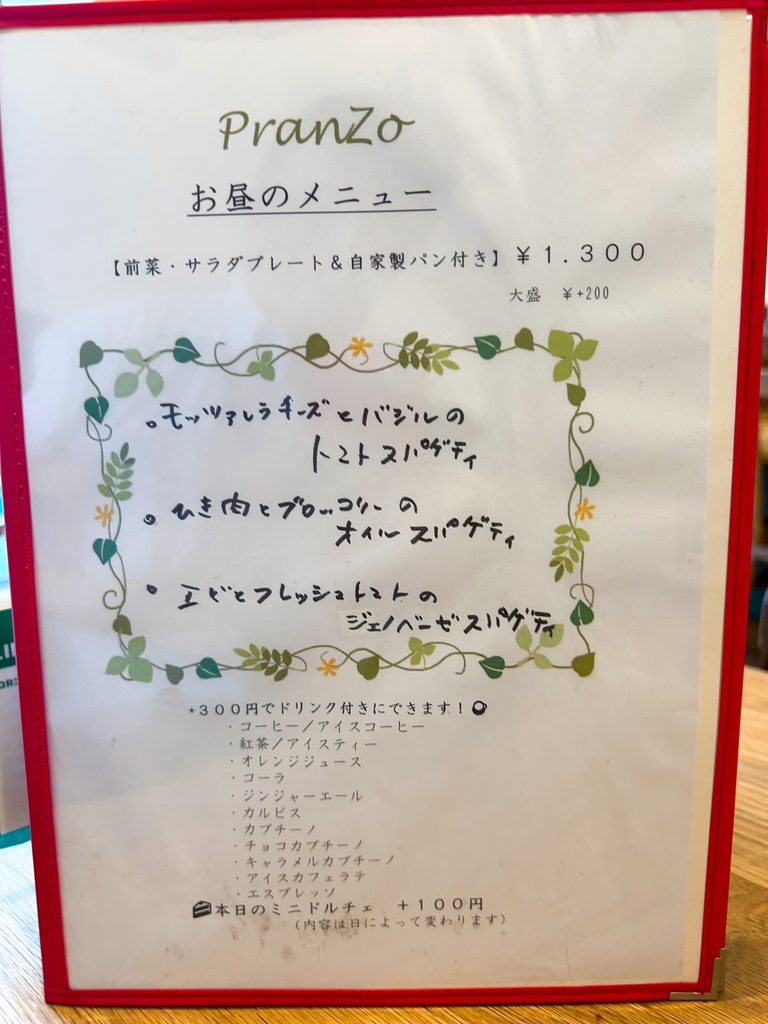 PranZo
お昼のメニュー
【前菜・サラダプレート＆自家製パン付き】￥１．３００
大盛　￥+200
・モッツァレラチーズとバジルの
トマトスパゲティ
・ひき肉とブロッコリーの
オイルスパゲティ
・エビとフレッシュトマトの
ジェノベーゼスパゲティ
+３００円でドリンク付きにできます！
・コーヒー／アイスコーヒー
・紅茶／アイスティー
・オレンジジュース
・コーラ
・ジンジャーエール
・カルピス
・カプチーノ
・チョコカプチーノ
・キャラメルカプチーノ
・アイスカフェラテ
・エスプレッソ
本日のミニドルチェ　＋１００円
（内容は日によって変わります）